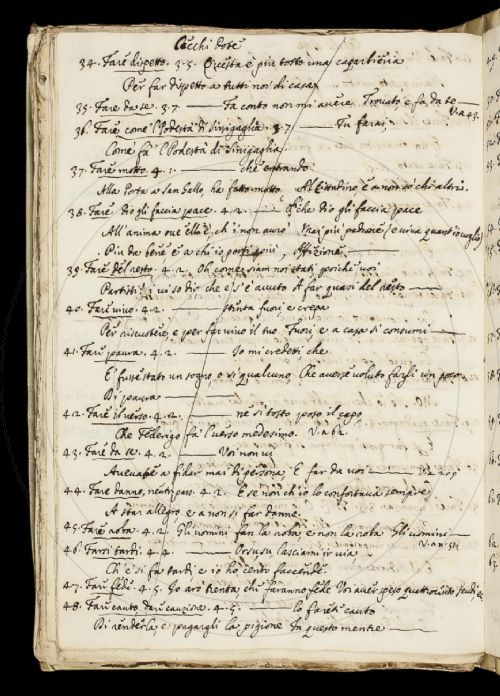 Cecchi Dote
34. Fare dispetto. 3. 5. Questa è piu tosto una caparbieria
Per far dispetto a tutti noi di casa
35. Fare da se. 3. 7. — Fa conto non mi avere Trovato e fa da te —
V. a 43.
36. Fare come l Podestà di Sinigaglia. 3. 7. — Tu farai,
Come fa l Podestà di Sinigaglia.
37. Fare motto. 4. 1. — che entrando
Alla Porta a San Gallo, ha fatto motto Al e a non so chi altri.
38. Fare dio gli faccia pace. 4. 2. — che dio gli faccia pace
All' anima ove ell' è ch' i non avrò Mai più padrone
Più da bene è a chi io porti più, Affizione
39. Fare del resto. 4. 2. Oh come siam noi stati poiche voi
Partisti! i vi so dir che e s' è avuto A far quasi del resto —
40. Fare vivo. 4. 2. — stinta fuori e crepa
Per riscuotere, e per far vivo il tuo Fuori, e a casa si consumi —
41. Fare paura. 4. 2. — Io mi credetti che
E' fusse stato un sogno, o sì qualcuno, Che avesse voluto farsi un poco
Di paura —
42. Fare il verso. 4. 2. — ne sì tosto poso il capo
Che Federigo fa l verso medesimo. V. a 62.
43. Fare da se. 4. 2. — Voi non vi
Avevate a fidar mai di persona, E far da voi —
44. Fare danno, neutr. pass. 4. 2. E se non ch' io lo confortava sempre
A star allegro e a non si far danno.
45. Fare roba. 4. 2. Gli uomini fan la roba, e non la roba Gli uomini —
V. a n. 51.
46. Farsi tardi. 4. 4. — Orsusu lasciami ir via
Ch' e' si fa tardi, e io ho cento faccende.
47. Fare fede. 4. 5. Io arò trenta che faranno fede Voi aver speso quattrocento scudi, e
48. Fare cauto dare cauzione. 4. 5. — lo farete cauto
Di renderla e pagargli la pigione In questo mentre —